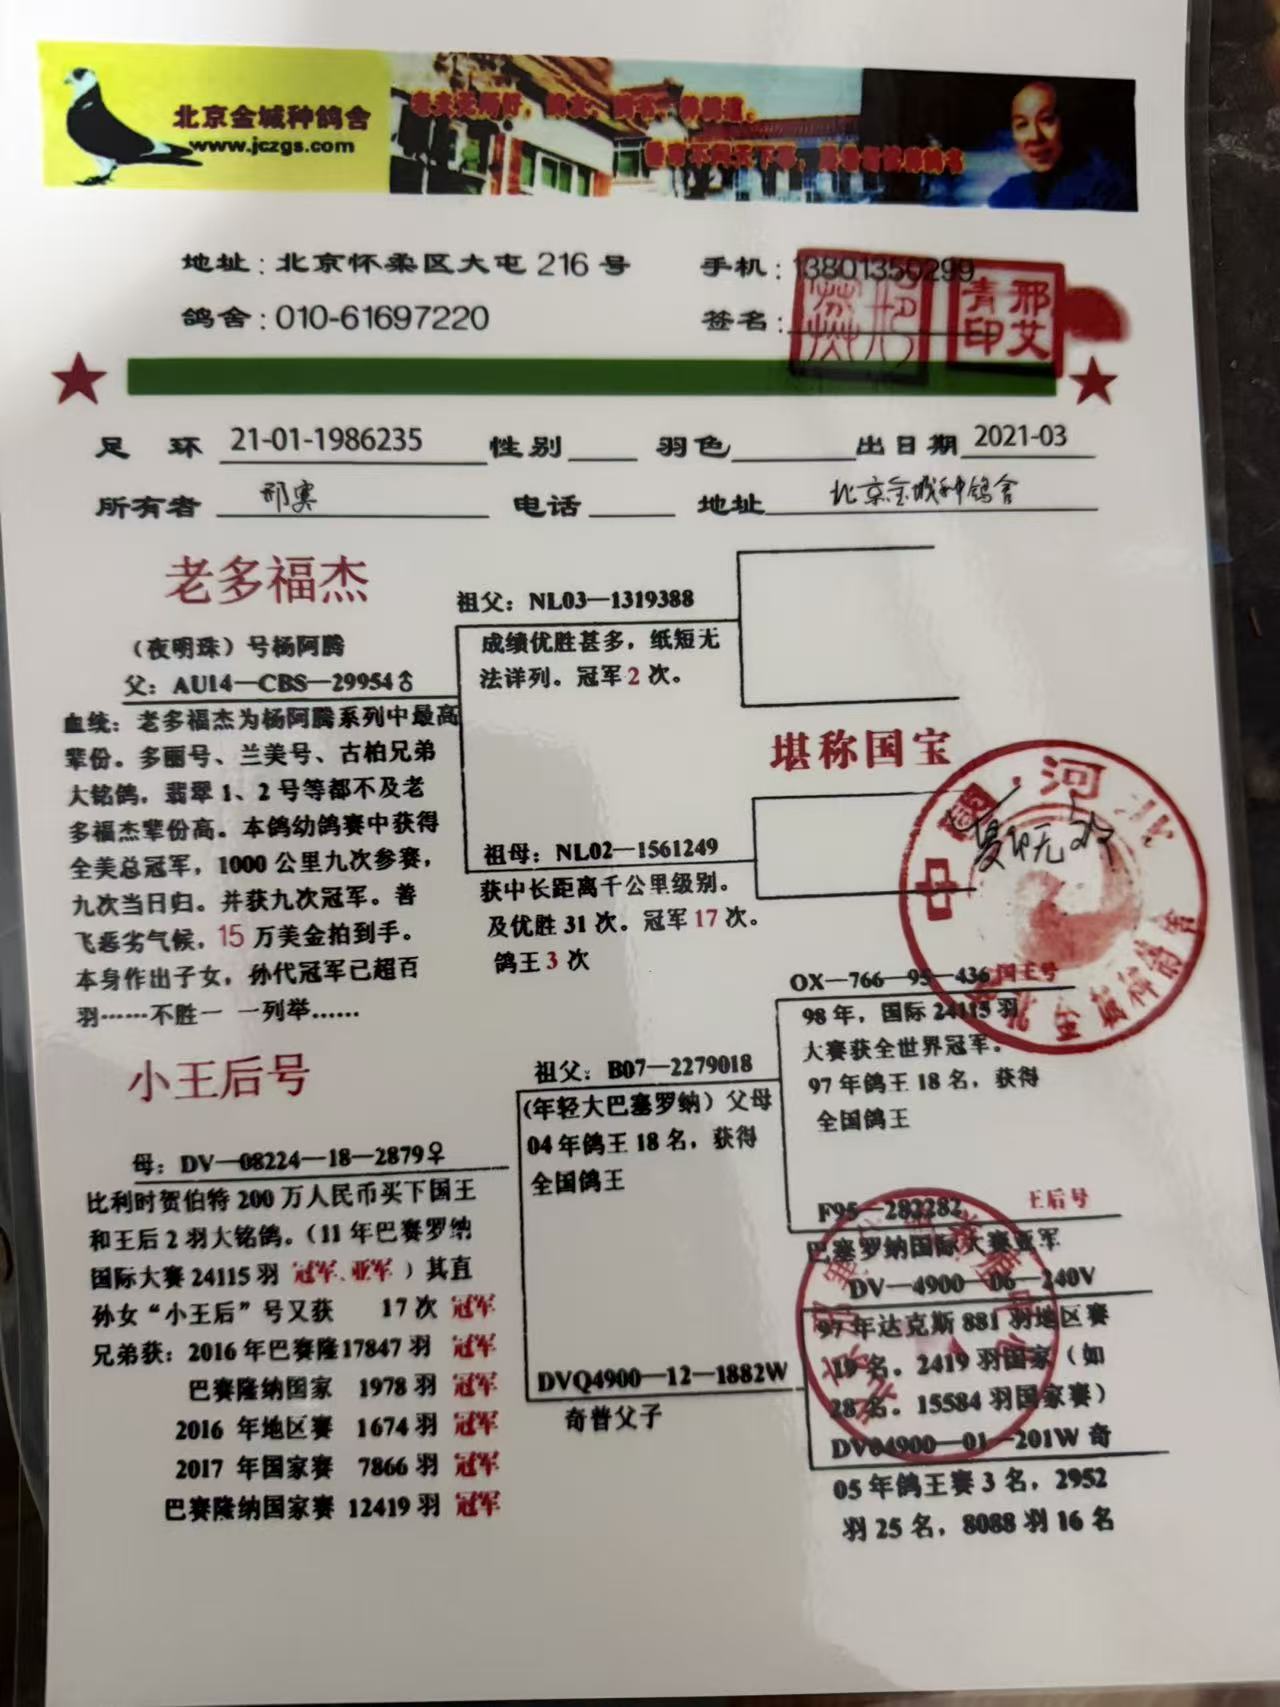 北京金城种鸽舍
www.jczgs.com
地址：北京怀柔区大屯 216 号 手机：13801350299
鸽舍：010-61697220 签名：
邢艾青印
足 环 21-01-1986235 性别 羽色 出日期 2021-03
所有者 邢寅 电话 地址 北京金城种鸽舍
老多福杰
（夜明珠）号杨阿腾
父：AU14—CBS—29954♂
血统：老多福杰为杨阿腾系列中最高
辈份。多丽号、兰美号、古柏兄弟
大铭鸽，翡翠 1、2 号等都不及老
多福杰辈份高。本鸽幼鸽赛中获得
全美总冠军，1000 公里九次参赛，
九次当日归。并获九次冠军。善
飞恶劣气候，15 万美金拍到手。
本身作出子女，孙代冠军已超百
羽……不胜一 一列举……
祖父：NL03—1319388
成绩优胜甚多，纸短无
法详列。冠军 2 次。
堪称国宝
祖母：NL02—1561249
获中长距离千公里级别。
及优胜 31 次。冠军 17 次。
鸽王 3 次
复印无效
小王后号
母：DV—08224—18—2879♀
比利时贺伯特 200 万人民币买下国王
和王后 2 羽大铭鸽。（11 年巴赛罗纳
国际大赛 24115 羽 冠军、亚军 ）其直
孙女“小王后”号又获 17 次 冠军
兄弟获：2016 年巴赛隆17847 羽 冠军
巴赛隆纳国家 1978 羽 冠军
2016 年地区赛 1674 羽 冠军
2017 年国家赛 7866 羽 冠军
巴赛隆纳国家赛 12419 羽 冠军
祖父：B07—2279018
(年轻大巴塞罗纳）父母
04 年鸽王 18 名，获得
全国鸽王
DVQ4900—12—1882W
奇普父子
OX—766—95—436 国王号
98 年，国际 24115 羽
大赛获全世界冠军。
97 年鸽王 18 名，获得
全国鸽王
F95—282282 王后号
巴塞罗纳国际大赛亚军
DV—4900—06—240V
97 年达克斯 881 羽地区赛
19 名。2419 羽国家（如
28 名。15584 羽国家赛）
DV04900—01—201W 奇
05 年鸽王赛 3 名，2952
羽 25 名，8088 羽 16 名